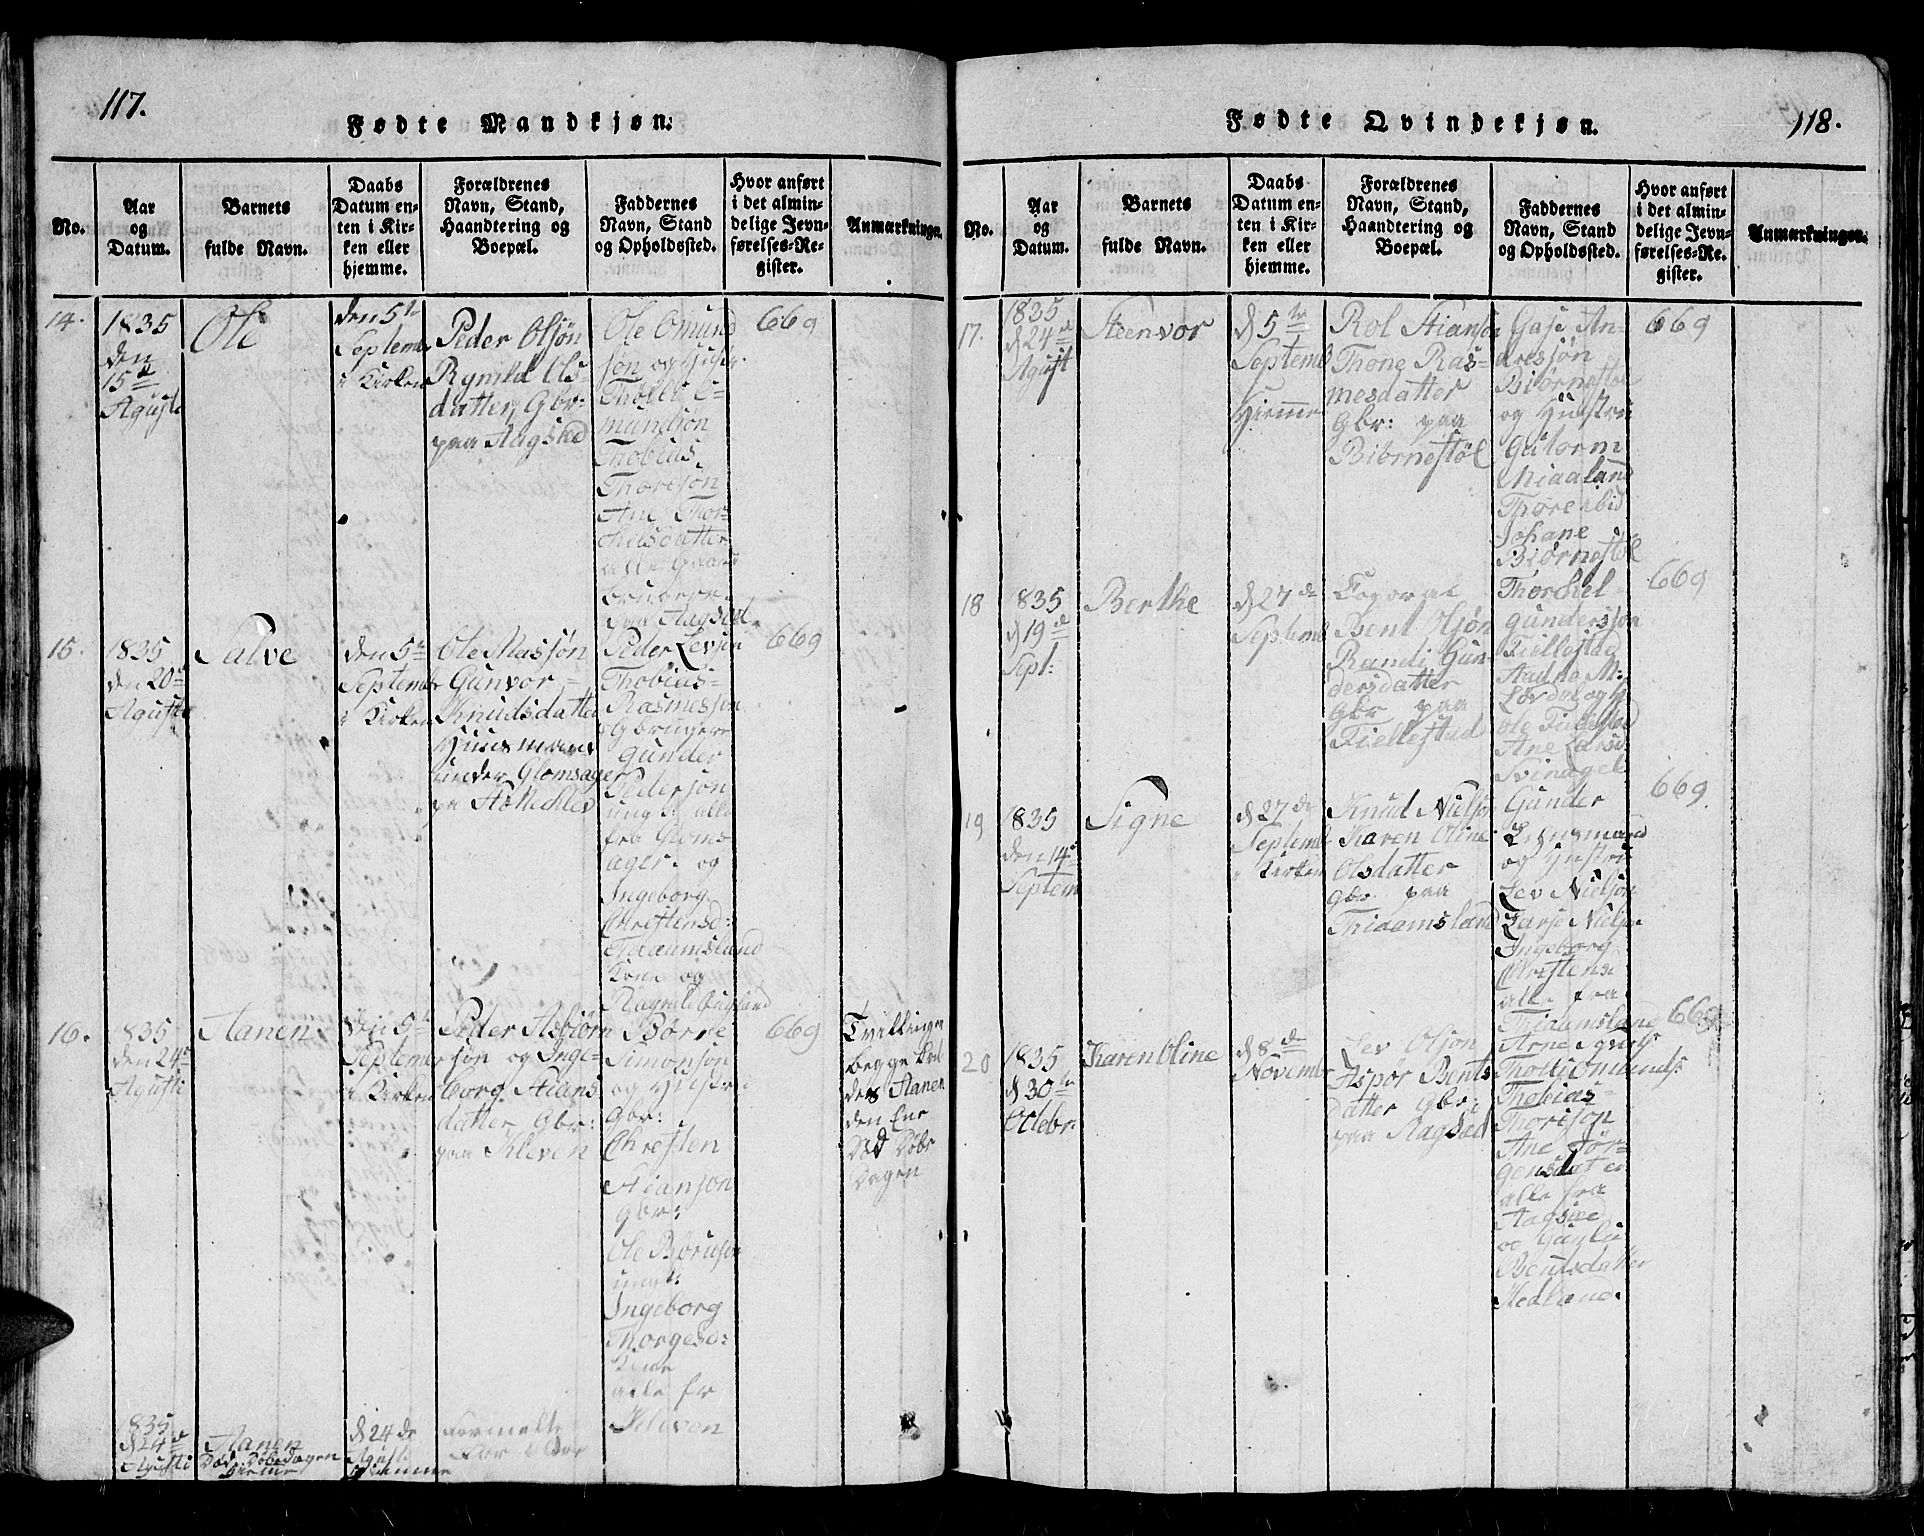 117.
Fødte Mandkjøn.
No.
Aar
og
Datum.
Barnets
fulde Navn.
Daabs
Datum en-
ten i Kir-
ken eller
hjemme.
Forældrenes
Navn, Stand,
Haandtering og
Boepæl.
Faddernes
Navn, Stand
og Opholdssted.
Hvor anført
i det almin-
delige Jevn-
førelses-Re-
gister.
Anmærkninger.
14.
1835
den
15de
Agusti
Ole
den 5te
Septembr
i Kirken
Peder Olsøn
Ols-
datter, Gbr:
paa Aagsted
Ole Omund
søn og Hustr.
Omundsøn
Thobius
Thoresøn
Ane Thor-
chelsdatter
alle Gaard
brugere
paa Aagsted
669
15.
1835
den 20de
Agusti
Salve
den 5te
Septembr
i Kirken
Ole Aassøn
Gunvor
Knudsdatter
Huusmand
under Glomsager
Peder Levsen
Thobias-
Rasmessøn
Gbrugere
Gunder
Pedersøn
ungk: alle
fra Gloms
ager. og
Ingeborg
Christensd:
Tiaamsland
Kone og
669
16.
1835
den 24de
Agusti
Aanen
den 5te
Septembr
i Kirken
Peder Asbiørn
søn og Inge-
borg Stians
datter Gbr:
paa Kleven
Børre
Simonsøn
og Hustr:
Gbr:
Christen
Stiansøn
Gbr:
Ole Børresøn
ungk:
Ingeborg
Thorgesd:
Kone
alle fr
Kleven
669
Tvillinger
begge
des Aanen
den Ene
Død Døbe
Dagen
1835
d 24de
Agusti
Aanen
Død Døbedagen
Hieme
d 24de
Agusti
Hiemme
Formelte
118.
Fødte Qvindekjøn.
No.
Aar
og
Datum.
Barnets
fulde Navn.
Daabs
Datum en-
ten i Kir-
ken eller
hjemme.
Forældrenes
Navn, Stand,
Haandtering og
Boepæl.
Faddernes
Navn, Stand
og Opholdssted.
Hvor anført
i det almin-
delige Jevn-
førelses-Re-
gister.
Anmærkninger.
17.
1835
d 24de
Agust
Steenvor
d 5te
Septembr
Hiemme
Rol Stiansøn
Thone Ras-
mesdatter
Gbr: paa
Biørnestøl
Gase An-
dresjøn
Biørnestøl
og Hustru
Gutorm
Miaaland
Thore ibid
Johane
Biørnestøl
669
18
1835
d 19de
Sept:
Berthe
d 27de
Septembr
Coporal
Bent Olsøn
Randi Gun-
dersdatter
Gbr paa
Fiellestad
Thorchel
Gundersøn
Fiellestad
Aanne M:
Lordal og H
Ole Fiellestad
Ane Larsd
Svindgel
669
19
1835
den 14de
Septem
Signe
d 27de
Septembr
i Kirken
Knud Nielsøn
Karen Oline
Olsdatter
Gbr paa
Thiaamsland
Gunder
og Hustru
Lev Nielsøn
Larse Nielsøn
Ingeborg
Christensd
alle fra
Thiaamsland
669
20
1835
d 30te
Octobr
Karen Oline
d 8de
Novembr
Lev Olsøn
Aspor Bents
datter Gbr:
paa Aagsted
Arne Syverts
Tholli Omunds:
Thobias
Thorison
Ane Jør-
gensdatter
alle fra
Aagsted
og Gunla
Bentsdatter
Hedland.
669